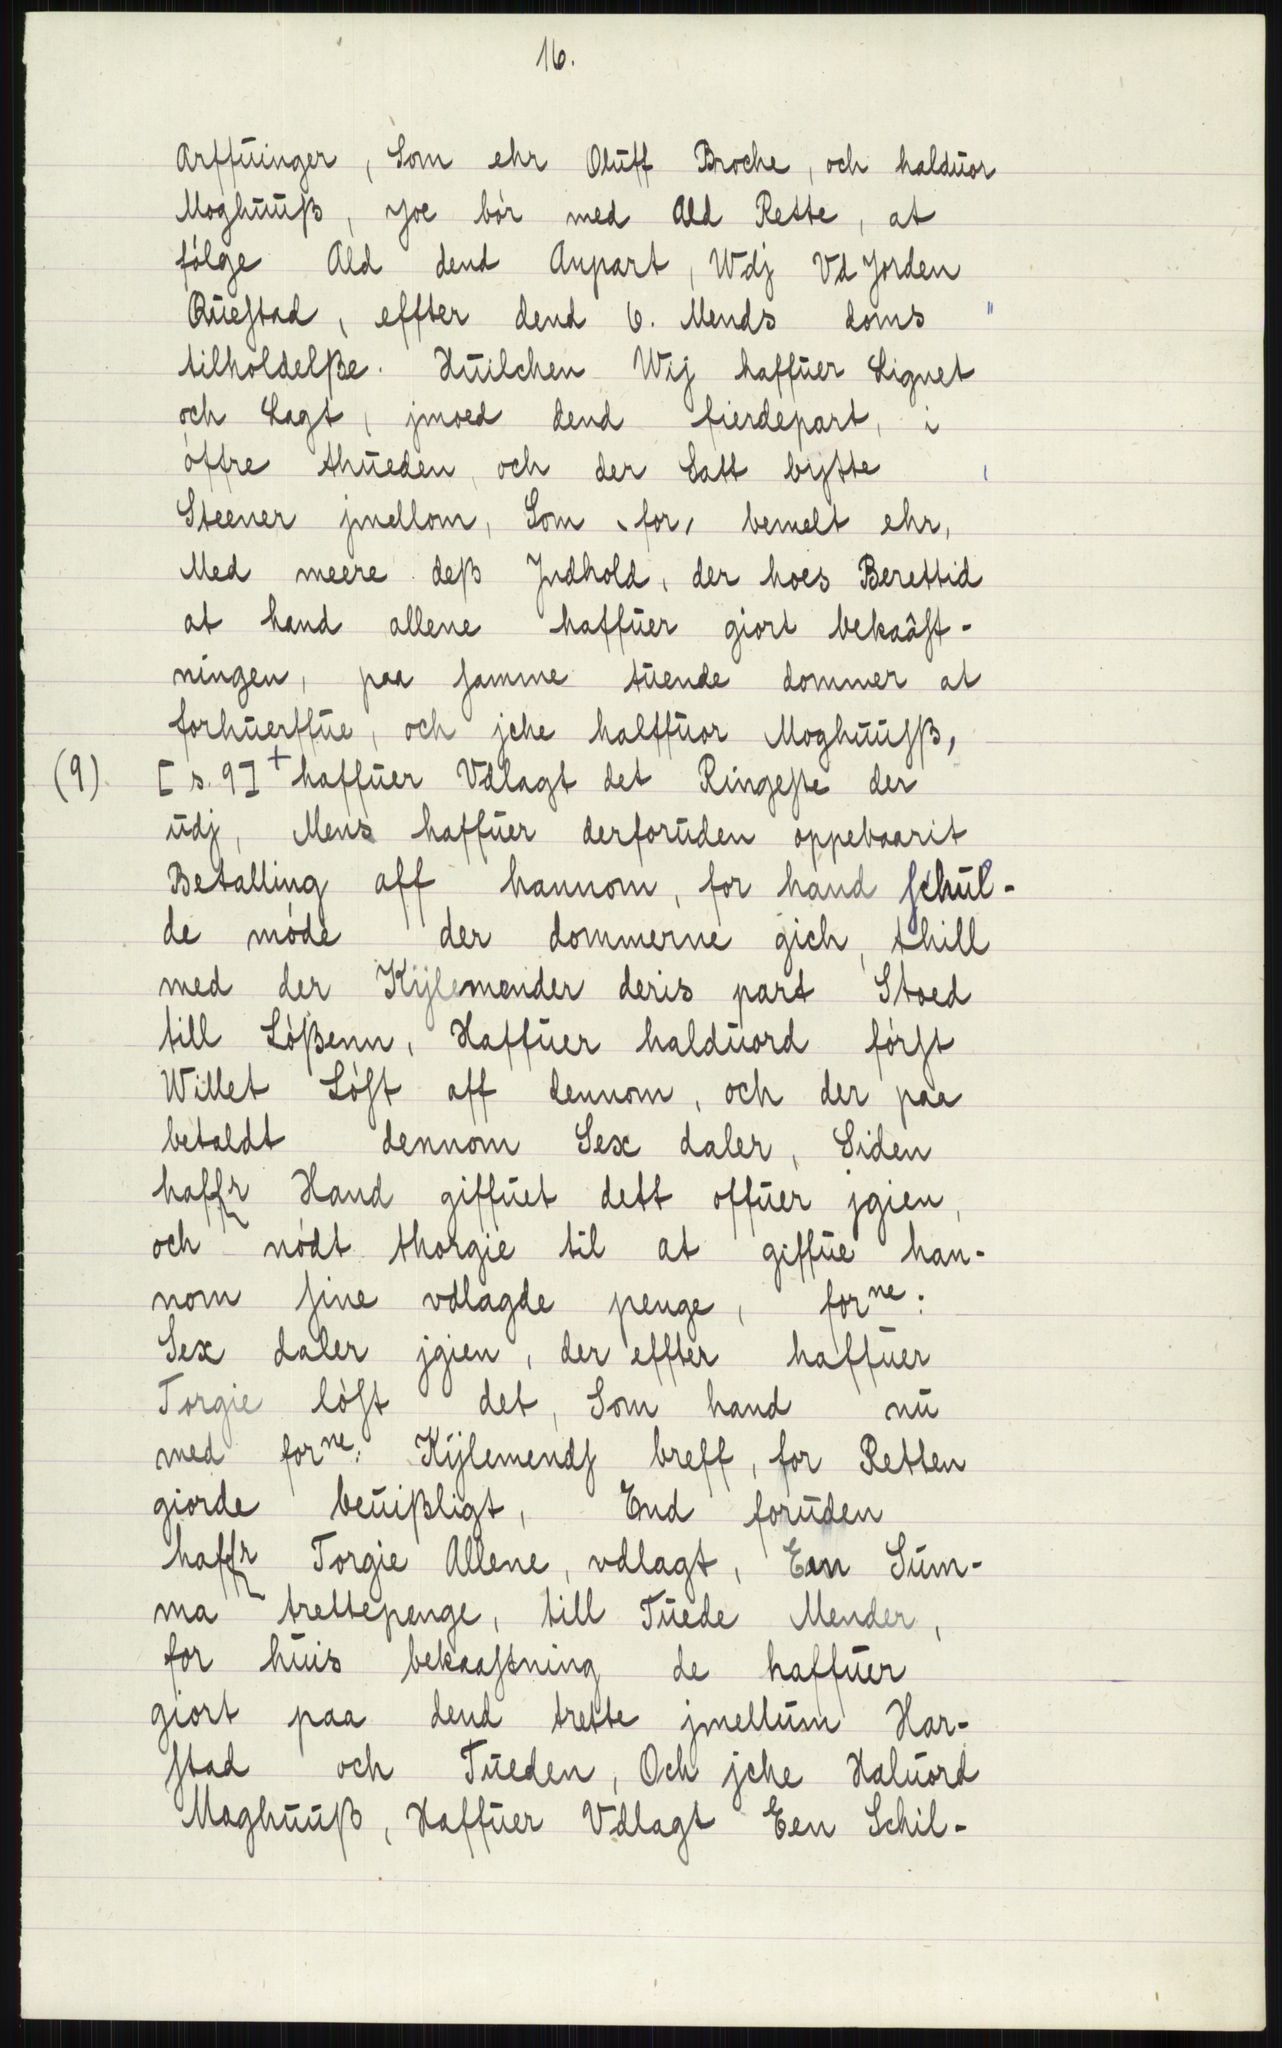 16.
Arffuinger, Som ehr Oluff Broche, och halduor
Moghuuß, joe bór med Ald Rette, at
fólge Ald dend Anpart, Wdj Vd Jorden
Queſtad, effter dend 6. Mends doms "
tilholdelße. Huilchen Wij haffuer Lignet
och Lagt, jmoed dend fierdepart, i
óffre thueden, och der Satt bytte
Steener jmellom, Som for, bemelt ehr,
Med meere deß Jndhold, der hoes Berettid
at hand allene haffuer giort bekaâſt-
ningen, paa ſamme tuende dommer at
forhuerffue, och jche halffuor Moghuuſß,
(9) [s. 9] + haffuer Vdlagt det Ringeſte der
udj, Mens haffuer derforuden oppebaarit
Betalling aff hannom, for hand ſchul-
de móde der dommerne gich, thill
med der Kijlemender deris part Stoed
till Lóßenn, Haffuer halduord fórſt
Willet Lóſt aff dennom, och der paa
betaldt dennom Sex daler, Siden
haffr Hand giffuet dett offuer jgien,
och nódt thorgie til at giffue han-
nom ſine vdlagde penge, forne:
Sex daler jgien, der effter haffuer
Torgie lóſt det, Som hand nu
med forne: Kijlemendſ breff, for Retten
giorde beuißligt, End foruden
haffr Torgie Allene, vdlagt, Een Sum-
ma trettepenge, till Tuede Mender,
for huis bekaaſtning de haffuer
giort paa dend trette jmellum Har-
ſtad och Tueden, Och jche Haluord
Moghuuß, Haffuer Vdlagt Een Schil-